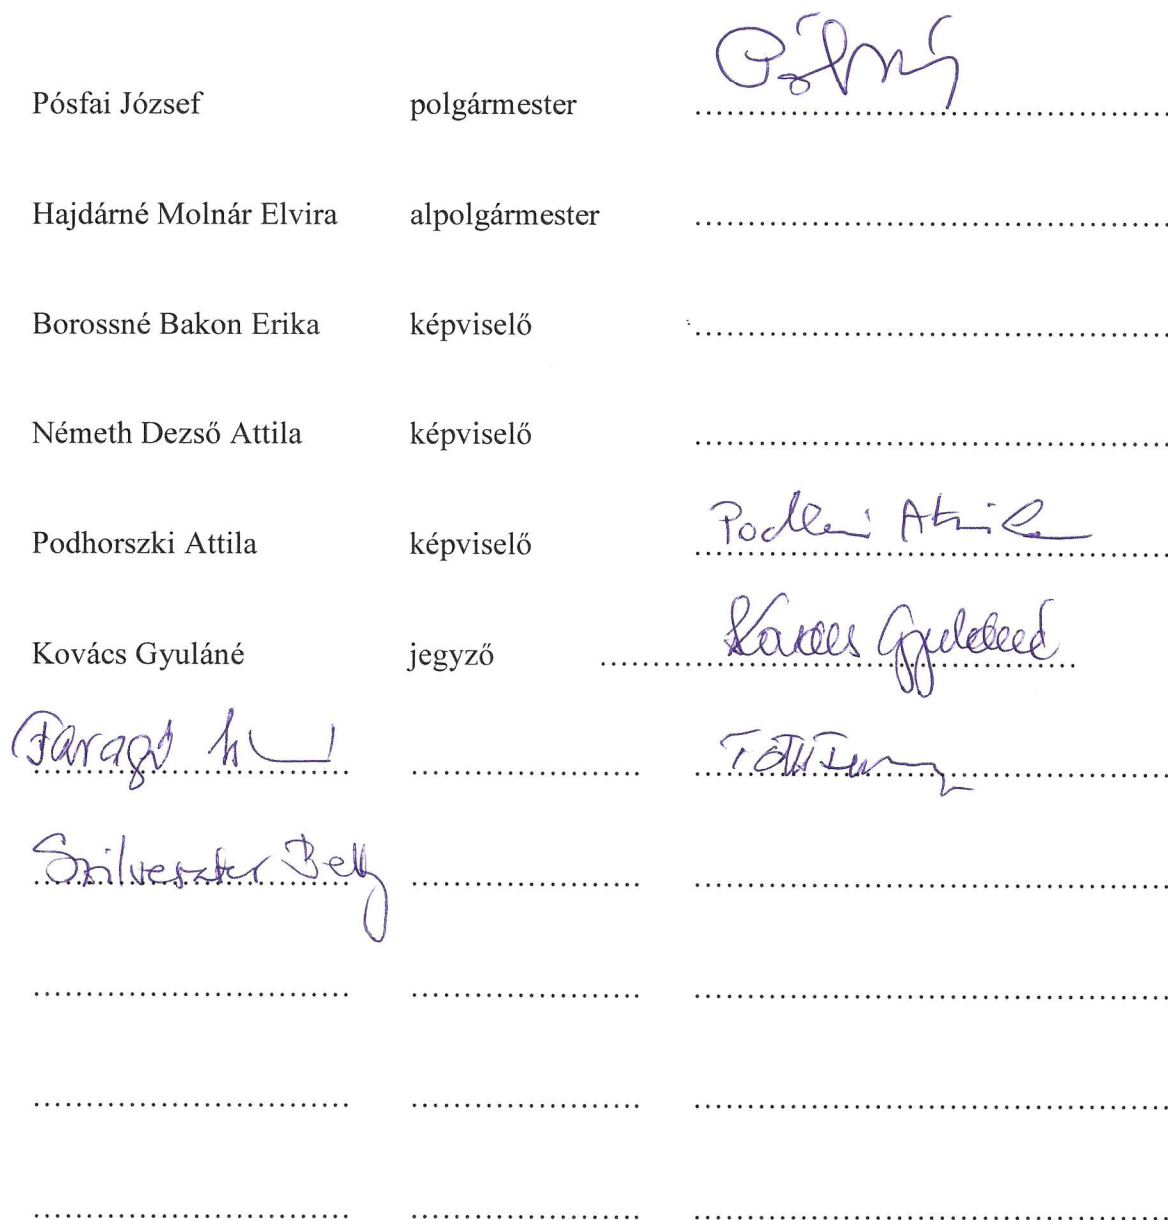 Pósfai József polgármester
Hajdárné Molnár Elvira alpolgármester
Borossné Bakon Erika képviselő
Németh Dezső Attila képviselő
Podhorszki Attila képviselő
Kovács Gyuláné jegyző Kovács Gyuláné
Faragó
Szilveszter